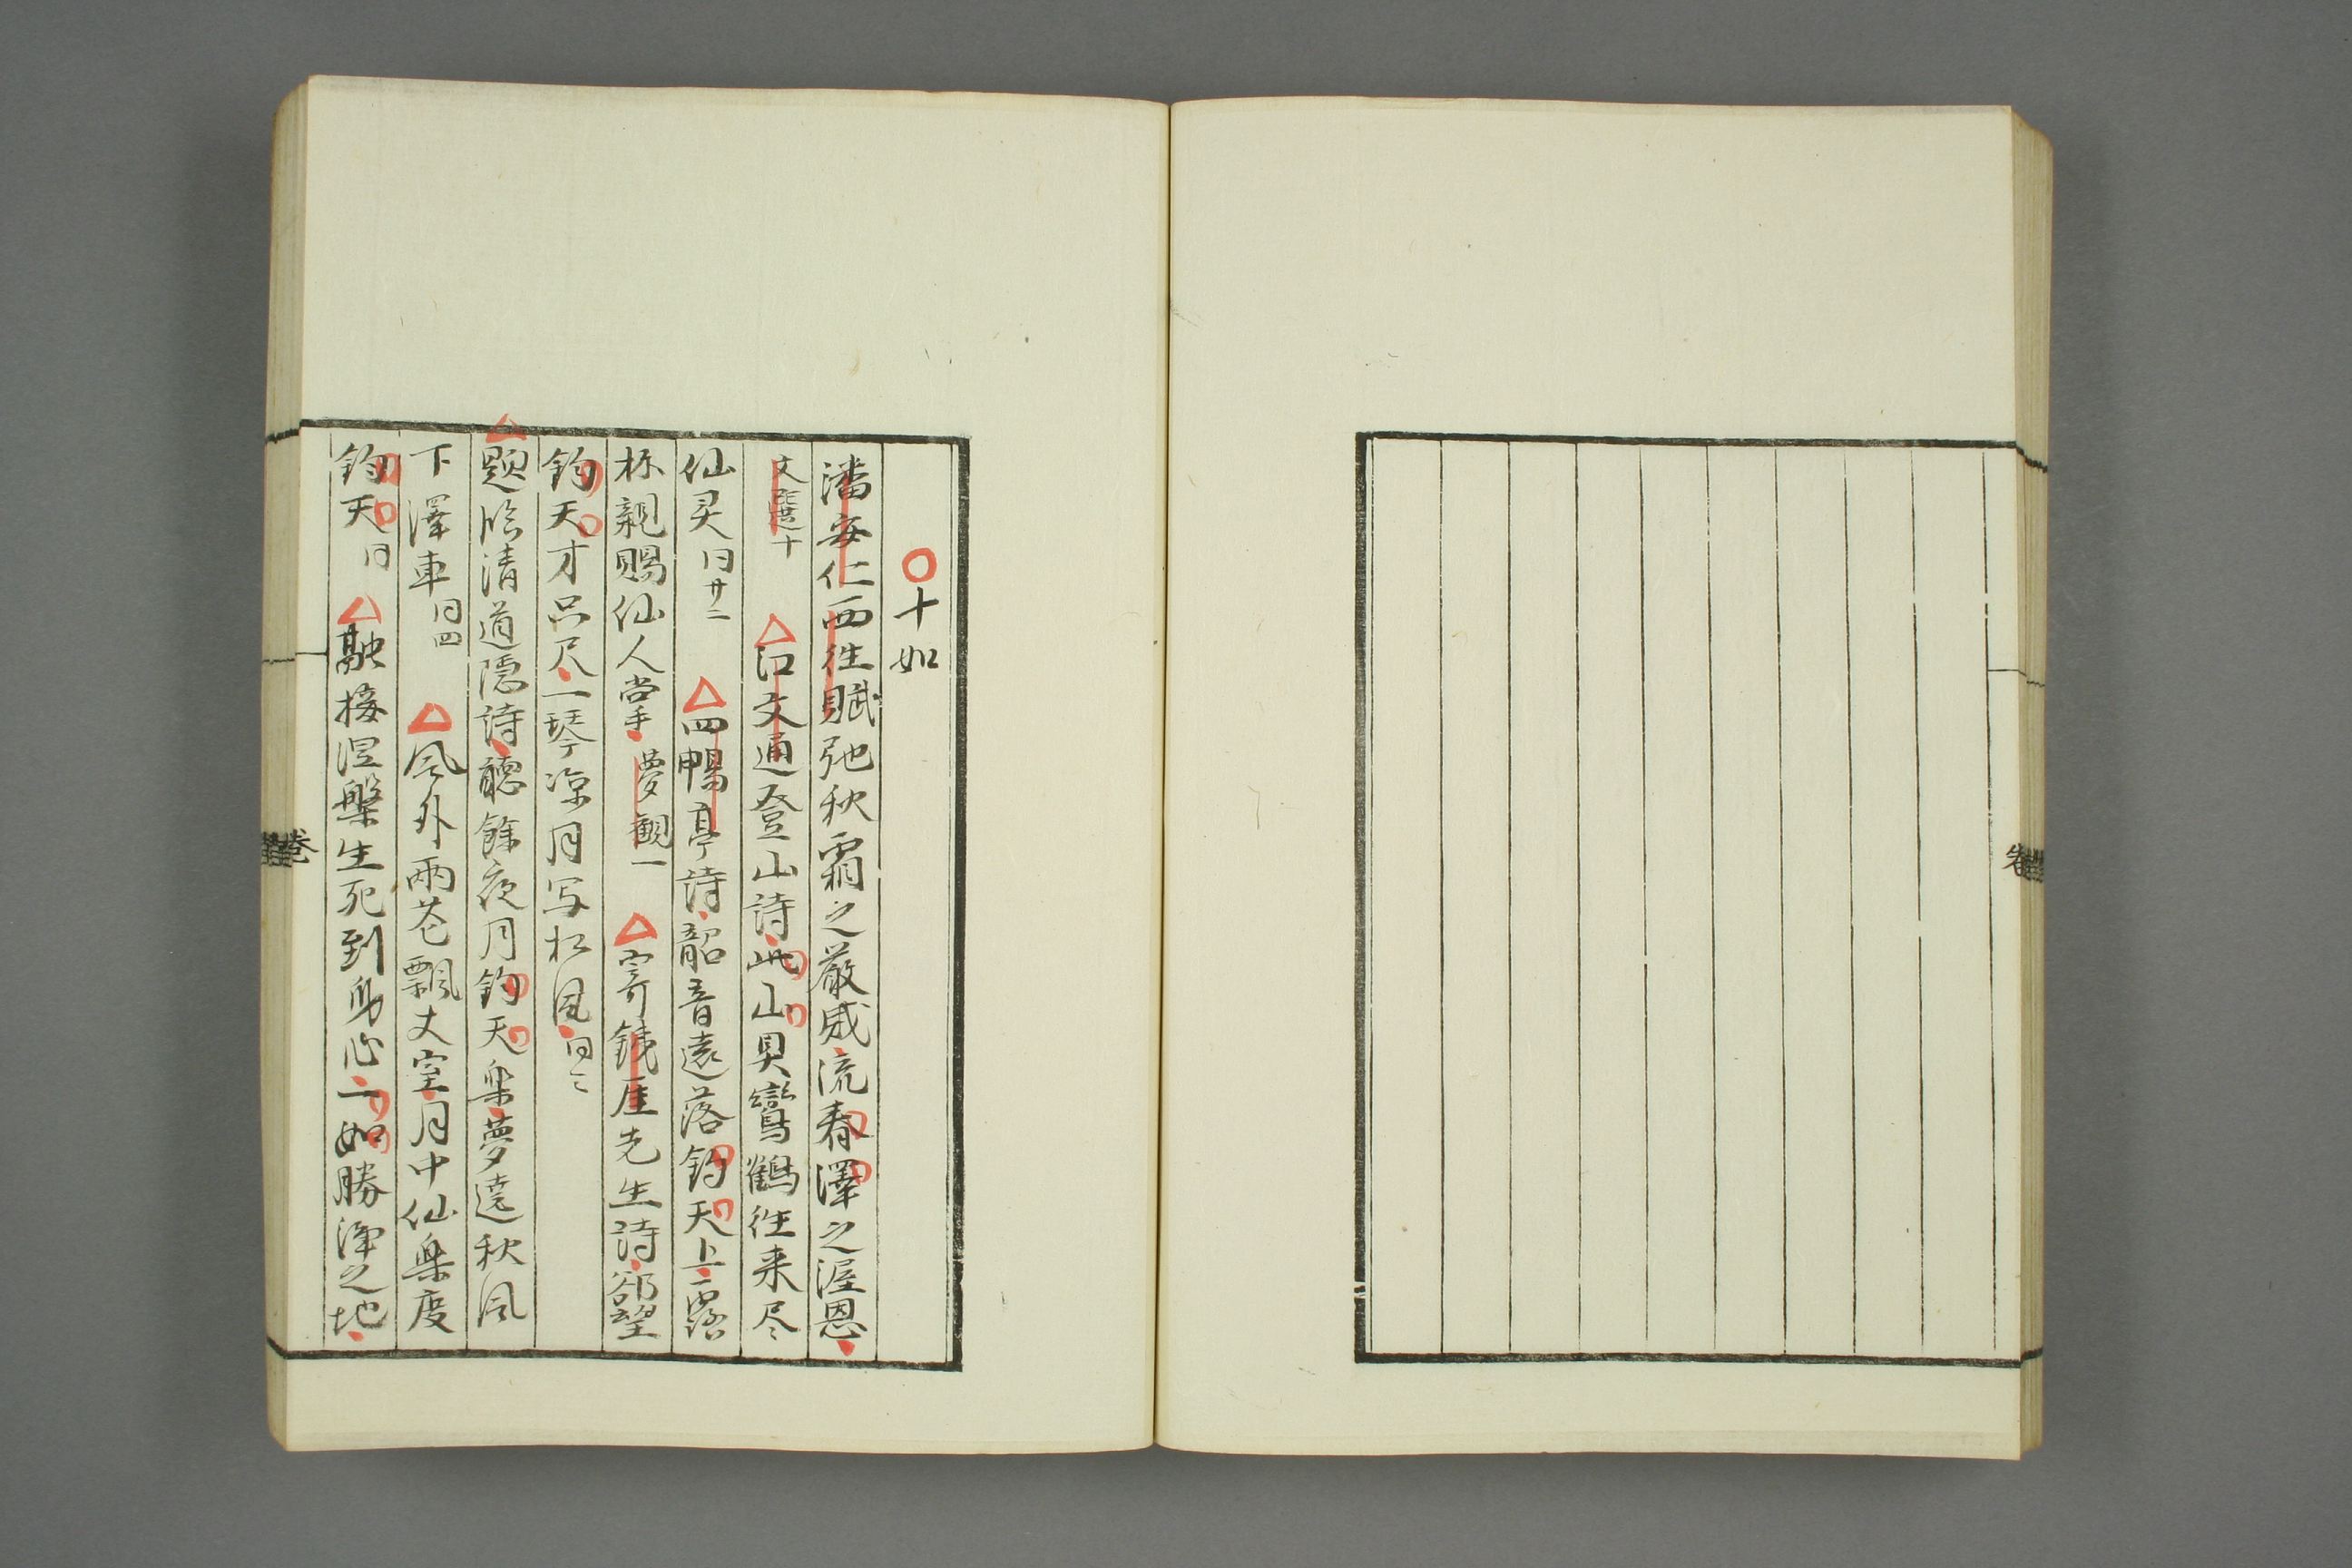 十如
潘安仁西征賦弛秋霜之嚴威流春澤之渥恩
文選十 江文通登山詩此山具鸞鶴往来尽
仙灵同廿二 四暢亭詩韶音遠落鈞天上一露
杯親賜仙人掌手夢観一 寄鉄厓先生詩欲望
鈞天才咫尺一琴凉月写松風同三
題陰清道隠詩聴餘夜月鈞天楽夢遶秋風
下澤車同四 风外雨花飄丈室月中仙楽度
鈞天同 融接涅槃生死到身心一如勝浄之地
卷